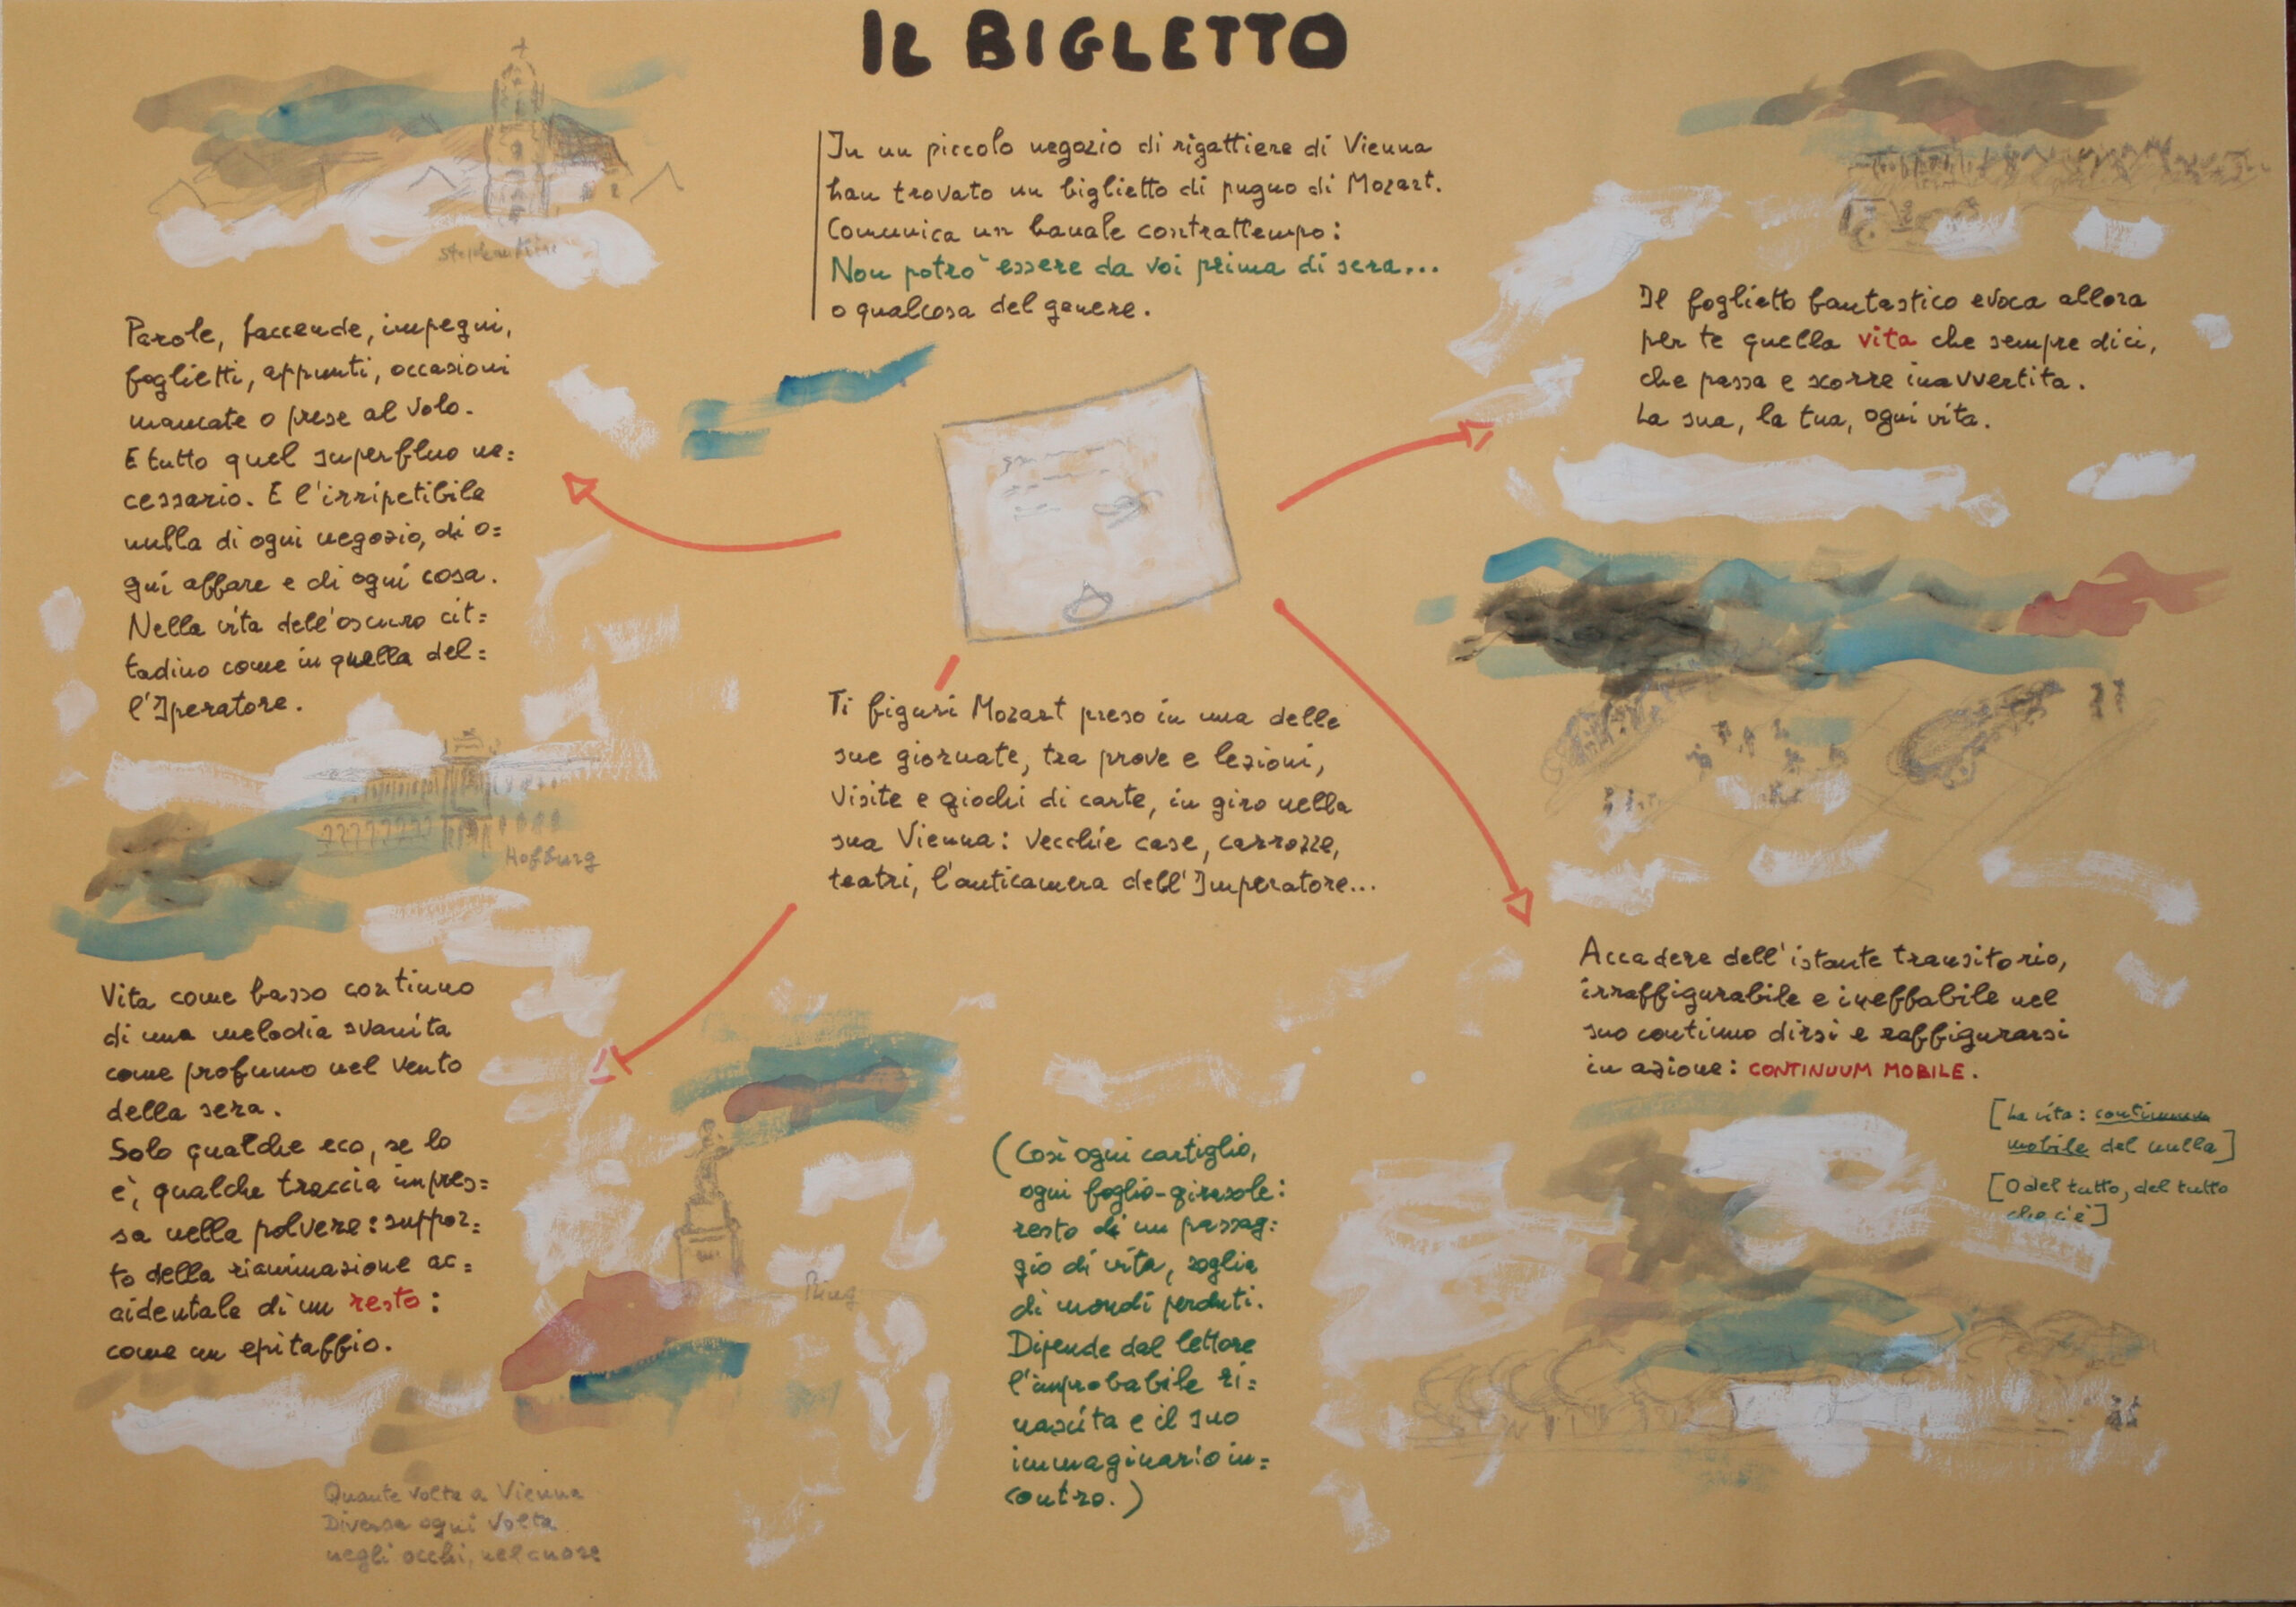 IL BIGLETTO
In un piccolo negozio di rigattiere di Vienna
han trovato un biglietto di pugno di Mozart.
Comunica un banale contrattempo:
Non potrò essere da voi prima di sera...
o qualcosa del genere.
Stephankirche
Parole, faccende, impegni,
foglietti, appunti, occasioni
mancate o prese al volo.
E tutto quel superfluo ne=
cessario. E l'irripetibile
nulla di ogni negozio, di o=
gni affare e di ogni cosa.
Nella vita dell'oscuro cit=
tadino come in quella del=
l'Iperatore.
Hofburg
Vita come basso continuo
di una melodia svanita
come profumo nel vento
della sera.
Solo qualche eco, se lo
è, qualche traccia impres=
sa nella polvere: suppor=
to della rianimazione ac=
cidentale di un resto:
come un epitaffio.
Quante volte a Vienna
Diversa ogni volta
negli occhi, nel cuore
Ti figuri Mozart preso in una delle
sue giornate, tra prove e lezioni,
visite e giochi di carte, in giro nella
sua Vienna: vecchie case, carrozze,
teatri, l'anticamera dell'Imperatore...
Ring
(Così ogni cartiglio,
ogni foglio-girasole:
resto di un passag=
gio di vita, soglia
di mondi perduti.
Dipende dal lettore
l'improbabile ri=
nascita e il suo
immaginario in=
contro.)
Il foglietto fantastico evoca allora
per te quella vita che sempre dici,
che passa e scorre inavvertita.
La sua, la tua, ogni vita.
Accadere dell'istante transitorio,
irraffigurabile e ineffabile nel
suo continuo dirsi e raffigurarsi
in azione: CONTINUUM MOBILE.
[La vita: continuum
mobile del nulla]
[O del tutto, del tutto
che c'è]